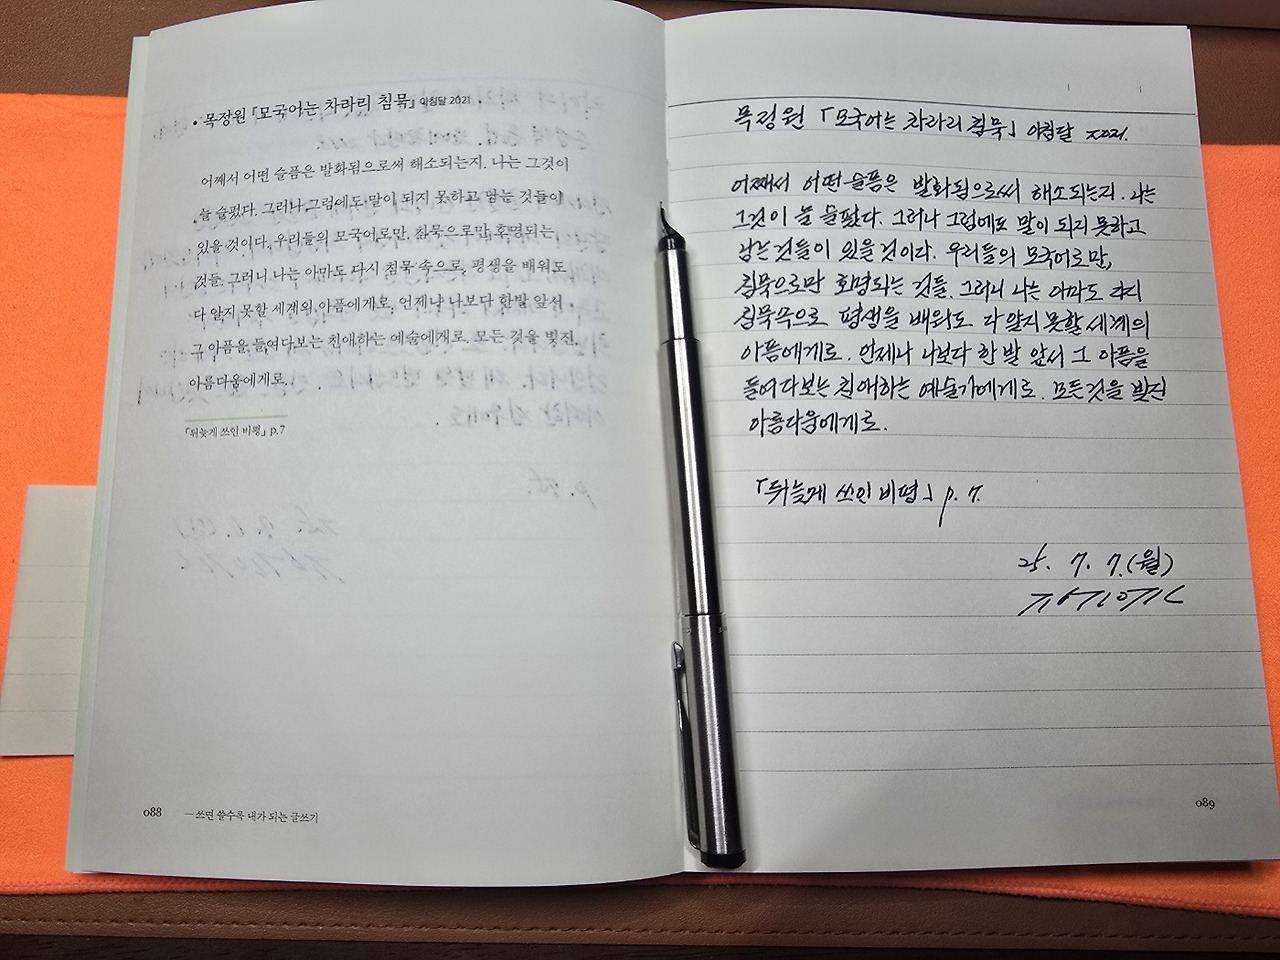 • 목정원 『모국어는 차라리 침묵』 아침달 2021
어째서 어떤 슬픔은 발화됨으로써 해소되는지. 나는 그것이
늘 슬펐다. 그러나 그럼에도 말이 되지 못하고 남는 것들이
있을 것이다. 우리들의 모국어로만, 침묵으로만 호명되는
것들. 그러니 나는 아마도 다시 침묵 속으로, 평생을 배워도
다 알지 못할 세계의 아픔에게로. 언제나 나보다 한발 앞서
그 아픔을 들여다보는 친애하는 예술에게로. 모든 것을 빚진
아름다움에게로.
「뒤늦게 쓰인 비평」 p.7
088
— 쓰면 쓸수록 내가 되는 글쓰기
목정원 「모국어는 차라리 침묵」 아침달 2021.
어째서 어떤 슬픔은 발화됨으로써 해소되는지. 나는
그것이 늘 슬펐다. 그러나 그럼에도 말이 되지 못하고
남는 것들이 있을 것이다. 우리들의 모국어로만,
침묵으로만 호명되는 것들. 그러니 나는 아마도 다시
침묵속으로 평생을 배워도 다 알지 못할 세계의
아픔에게로. 언제나 나보다 한 발 앞서 그 아픔을
들여다보는 친애하는 예술가에게로. 모든것을 빚진
아름다움에게로.
「뒤늦게 쓰인 비평」 p. 7.
25. 7. 7. (월)
089